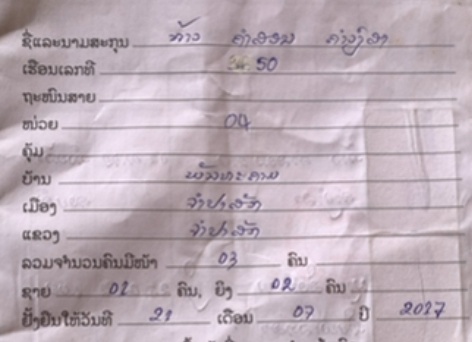 ຊື່ແລະນາມສະກຸນ ທ້າວ ຄຳຜອນ
ເຮືອນເລກທີ 50
ຖະໜົນສາຍ
ໜ່ວຍ 04
ຄຸ້ມ
ບ້ານ
ເມືອງ ຈຳປາສັກ
ແຂວງ ຈຳປາສັກ
ລວມຈຳນວນຄົນມີໜ້າ 03 ຄົນ
ຊາຍ 01 ຄົນ, ຍິງ 02 ຄົນ
ຢັ້ງຢືນໃຫ້ວັນທີ 21 ເດືອນ 07 ປີ 2017